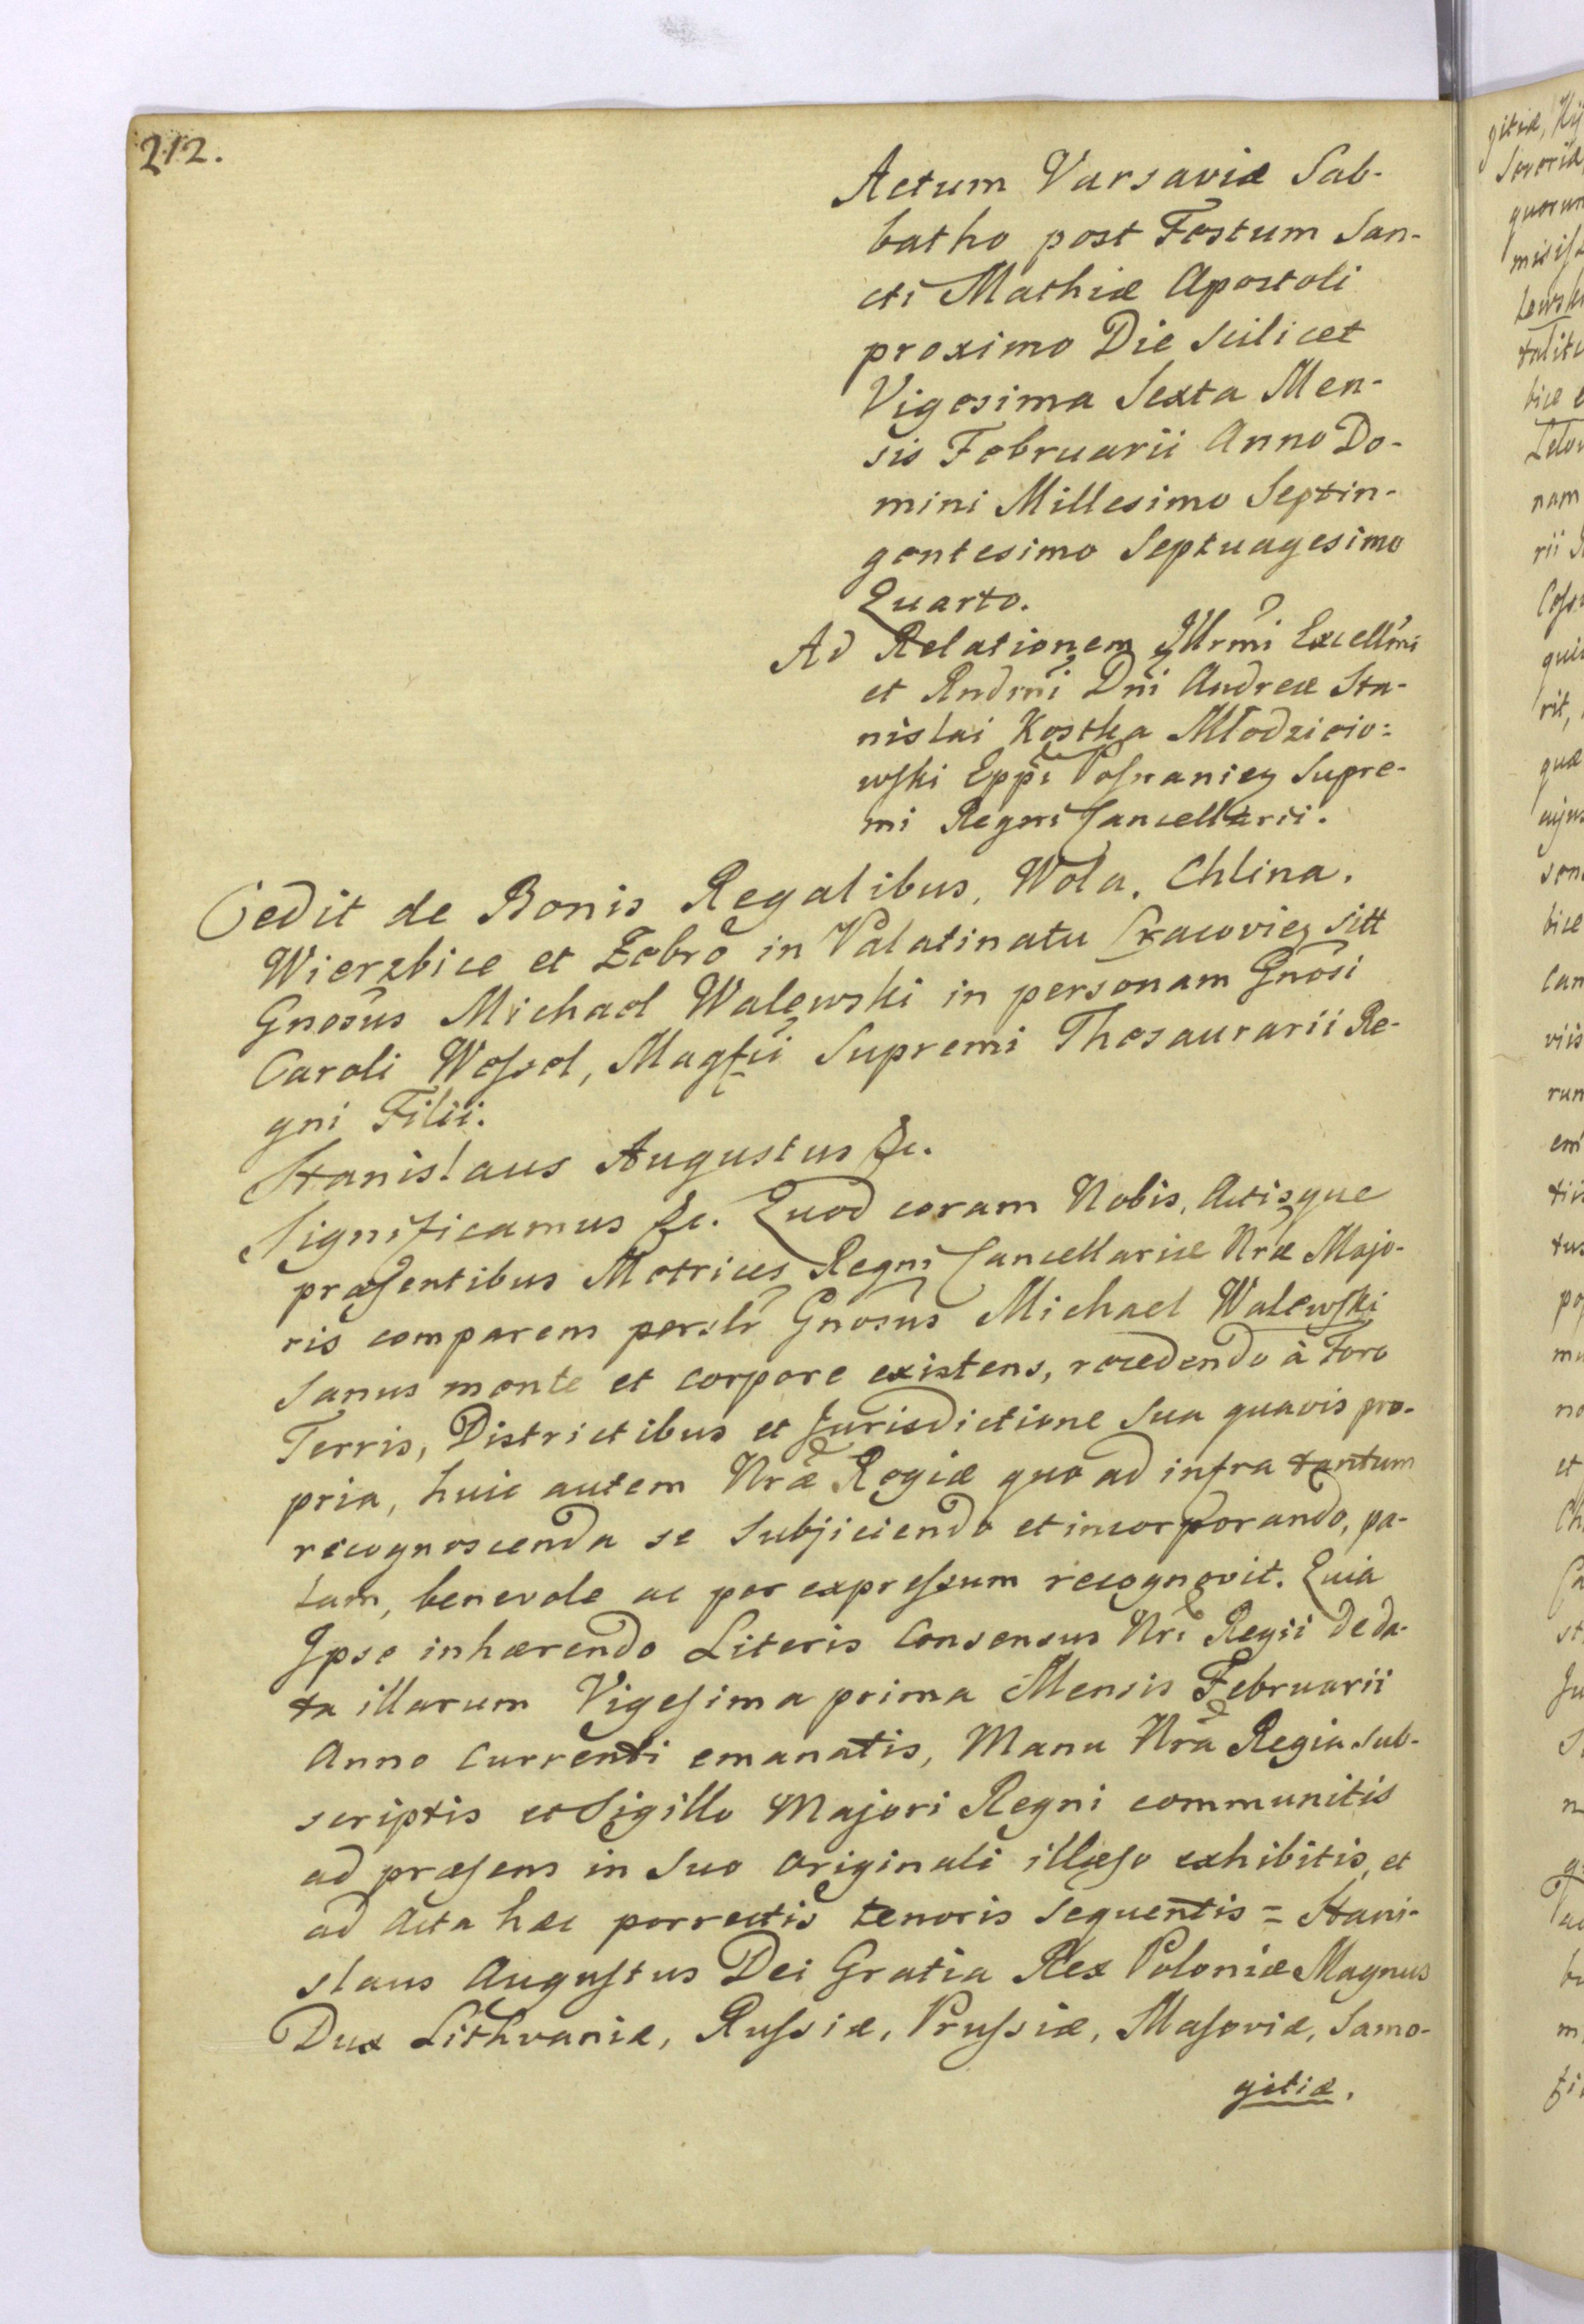 212.
Actum Varsaviæ Sab-
batho post Festum San-
cti Mathiæ Apostoli
proximo Die scilicet
Vigesima Sexta Men-
sis Februarii Anno Do-
mini Millesimo Septin-
gentesimo Septuagesimo
Quarto.
Ad Relationem Illrmi Excellmi
et Rndmi Dni Andreæ Sta-
nislai Kostka Młodzieio=
wski Eppi Posnanien Supre-
mi Regni Cancellarii.
Cedit de Bonis Regalibus, Wola, Chlina,
Wierzbice et Zebro in Palatinatu Cracovien sitt
Gnosus Michael Walewski in personam Gnosi
Caroli Wessel, Magfci Supremi Thesaurarii Re-
gni Filii.
Stanislaus Augustus &c.
Significamus &c. Quod coram Nobis, Actisque
præsentibus Metrices Regni Cancellariæ Nræ Majo-
ris comparens persłr Gnosus Michael Walewski
sanus mente et corpore existens, recedendo à Foro
Terris, Districtibus et Jurisdictione sua quavis pro-
pria, huic autem Nræ Regiæ quo ad infra tantum
recognoscenda se subjiciendo et incorporando, pa-
lam, benevole ac per expressum recognovit. Quia
Ipse inhærendo Literis Consensus Nri Regii de da-
ta illarum Vigesima prima Mensis Februarii
Anno Currenti emanatis, Manu Nra Regia sub-
scriptis et Sigillo Majori Regni communitis
ad præsens in suo originali illæso exhibitis, et
ad Acta hæc porrectis tenoris sequentis = Stani-
slaus Augustus Dei Gratia Rex Poloniæ Magnus
Dux Lithvaniæ, Russiæ, Prussiæ, Masoviæ, Samo-
gitiæ,